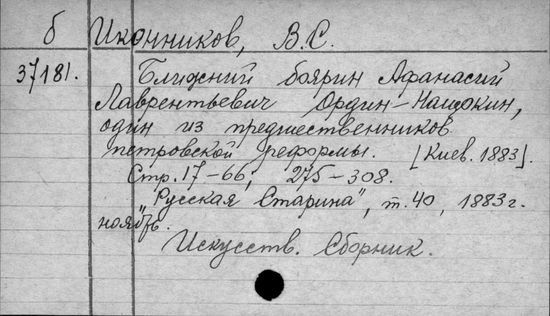 б Иконников, В.С.
37181. Ближний боярин Афанасий
Лаврентьевич Ордин-Нащокин,
один из предшественников
петровской реформы. [Киев. 1883].
Стр. 17-66; 275-308.
"Русская Старина", т. 40, 1883 г.
ноябрь.
Искусств. Сборник.